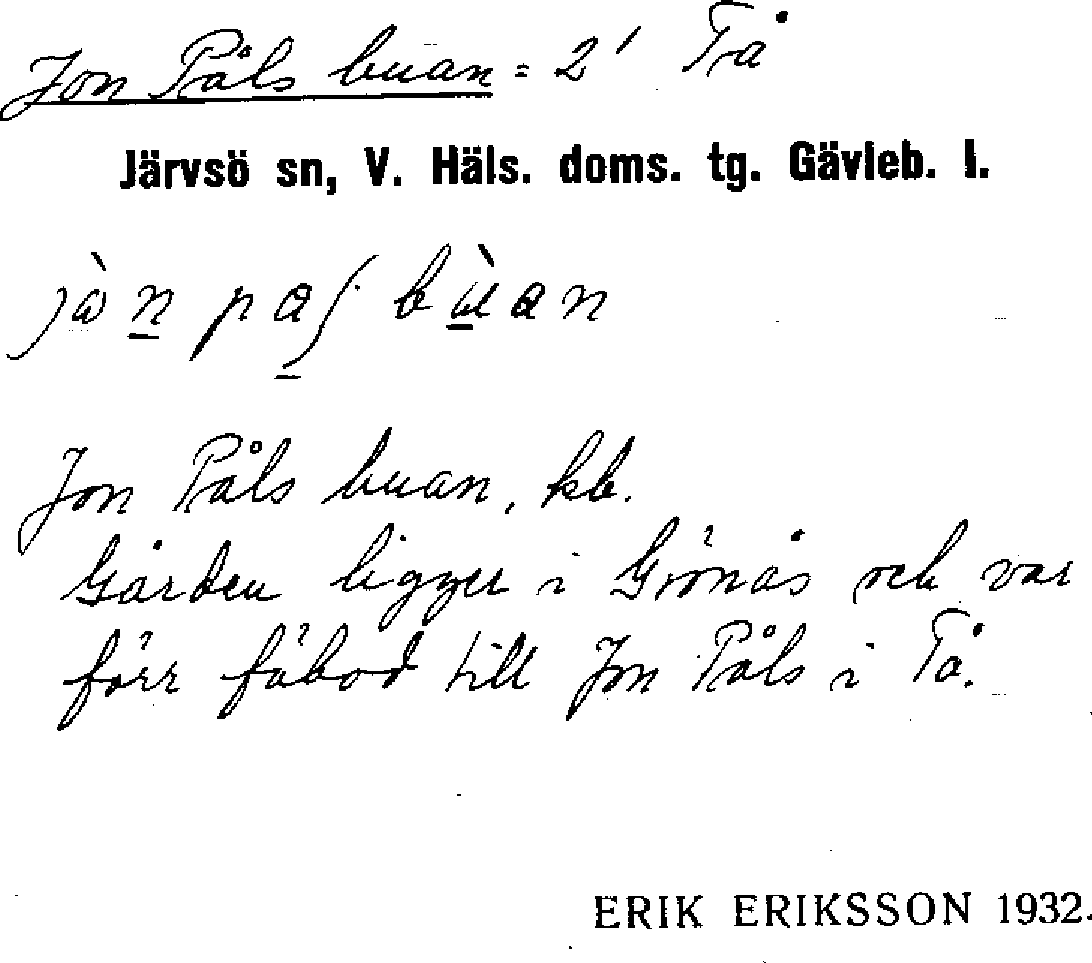 Jon Påls buan = 2' Tå
Järvsö sn, V. Häls. doms. tg. Gävleb. l.
Jon Påls buan, kb.
Gården ligger i Grönås och var
förr fäbod till Jon Påls i Tå.
ERIK ERIKSSON 1932.